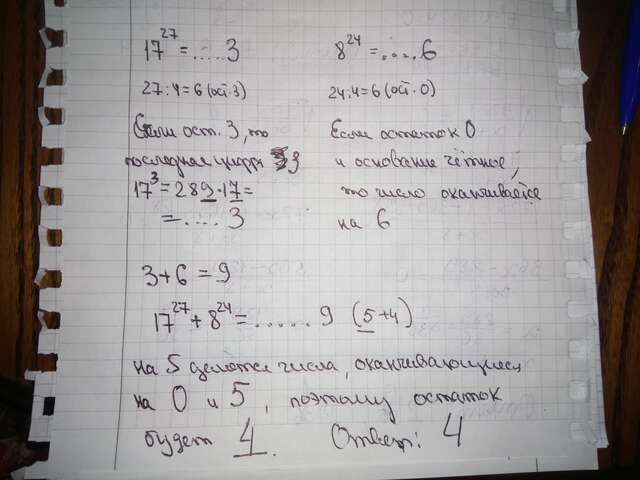 17²⁷ = .....3
27:4=6 (ост. 3)
Если ост. 3, то
последняя цифра 3
17³ = 289·17 =
= .....3
8²⁴ = .....6
24:4=6 (ост. 0)
Если остаток 0
и основание чётное,
то число оканчивается
на 6
3+6=9
17²⁷ + 8²⁴ = ....... 9 (5+4)
на 5 делятся числа, оканчивающиеся
на 0 и 5, поэтому остаток
будет 4. Ответ: 4